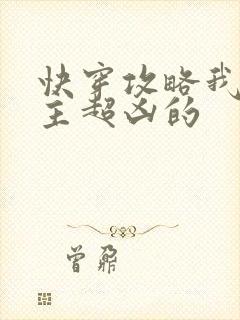 快穿攻略我
主超凶的
曾鼐